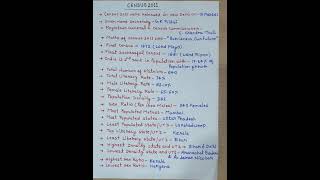 CENSUS 2011
→ Census 2011 were released in New Delhi on - 31 March
→ Union Home Secretary - G.K Pillai
→ Registrar General & Census Commissioner -
C. Chandra Mouli
→ Motto of census 2011 was -
→ First Census - 1872 (Lord Mayo)
→ First Successful Census - 1881 (Lord Ripon)
→ India is 2nd rank in Population with - 17.5% of
Population growth
→ Total Number of districts - 640
→ Total Literacy Rate - 74%
→ Male Literacy Rate -
→ Female Literacy Rate -
→ Population Density - 382
→ Sex Ratio (Per 1000 Males) - 943 Females
→ Most Populated Metros - Mumbai
→ Most Populated State - Uttar Pradesh
→ Least Populated State/UT's - Lakshadweep
→ Top Literacy State/UT's - Kerala
→ Least Literacy State/UT's - Bihar
→ Highest Density State and UT's - Bihar & Delhi
→ Lowest Density State and UT's - Arunachal Pradesh
& Andaman Nicobar
→ Highest Sex Ratio - Kerala
→ Lowest Sex Ratio - Haryana